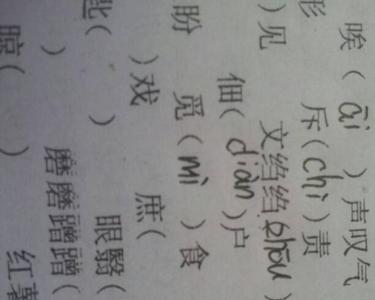 唉( āi )声叹气
形 斥(chì)责
)见 文绉绉(zhōu)
佃(diàn)户
盼 觅(mì)食
)戏 庶(
匙( ) 眼翳(
) 磨磨蹭蹭(
晾( ) 红薯